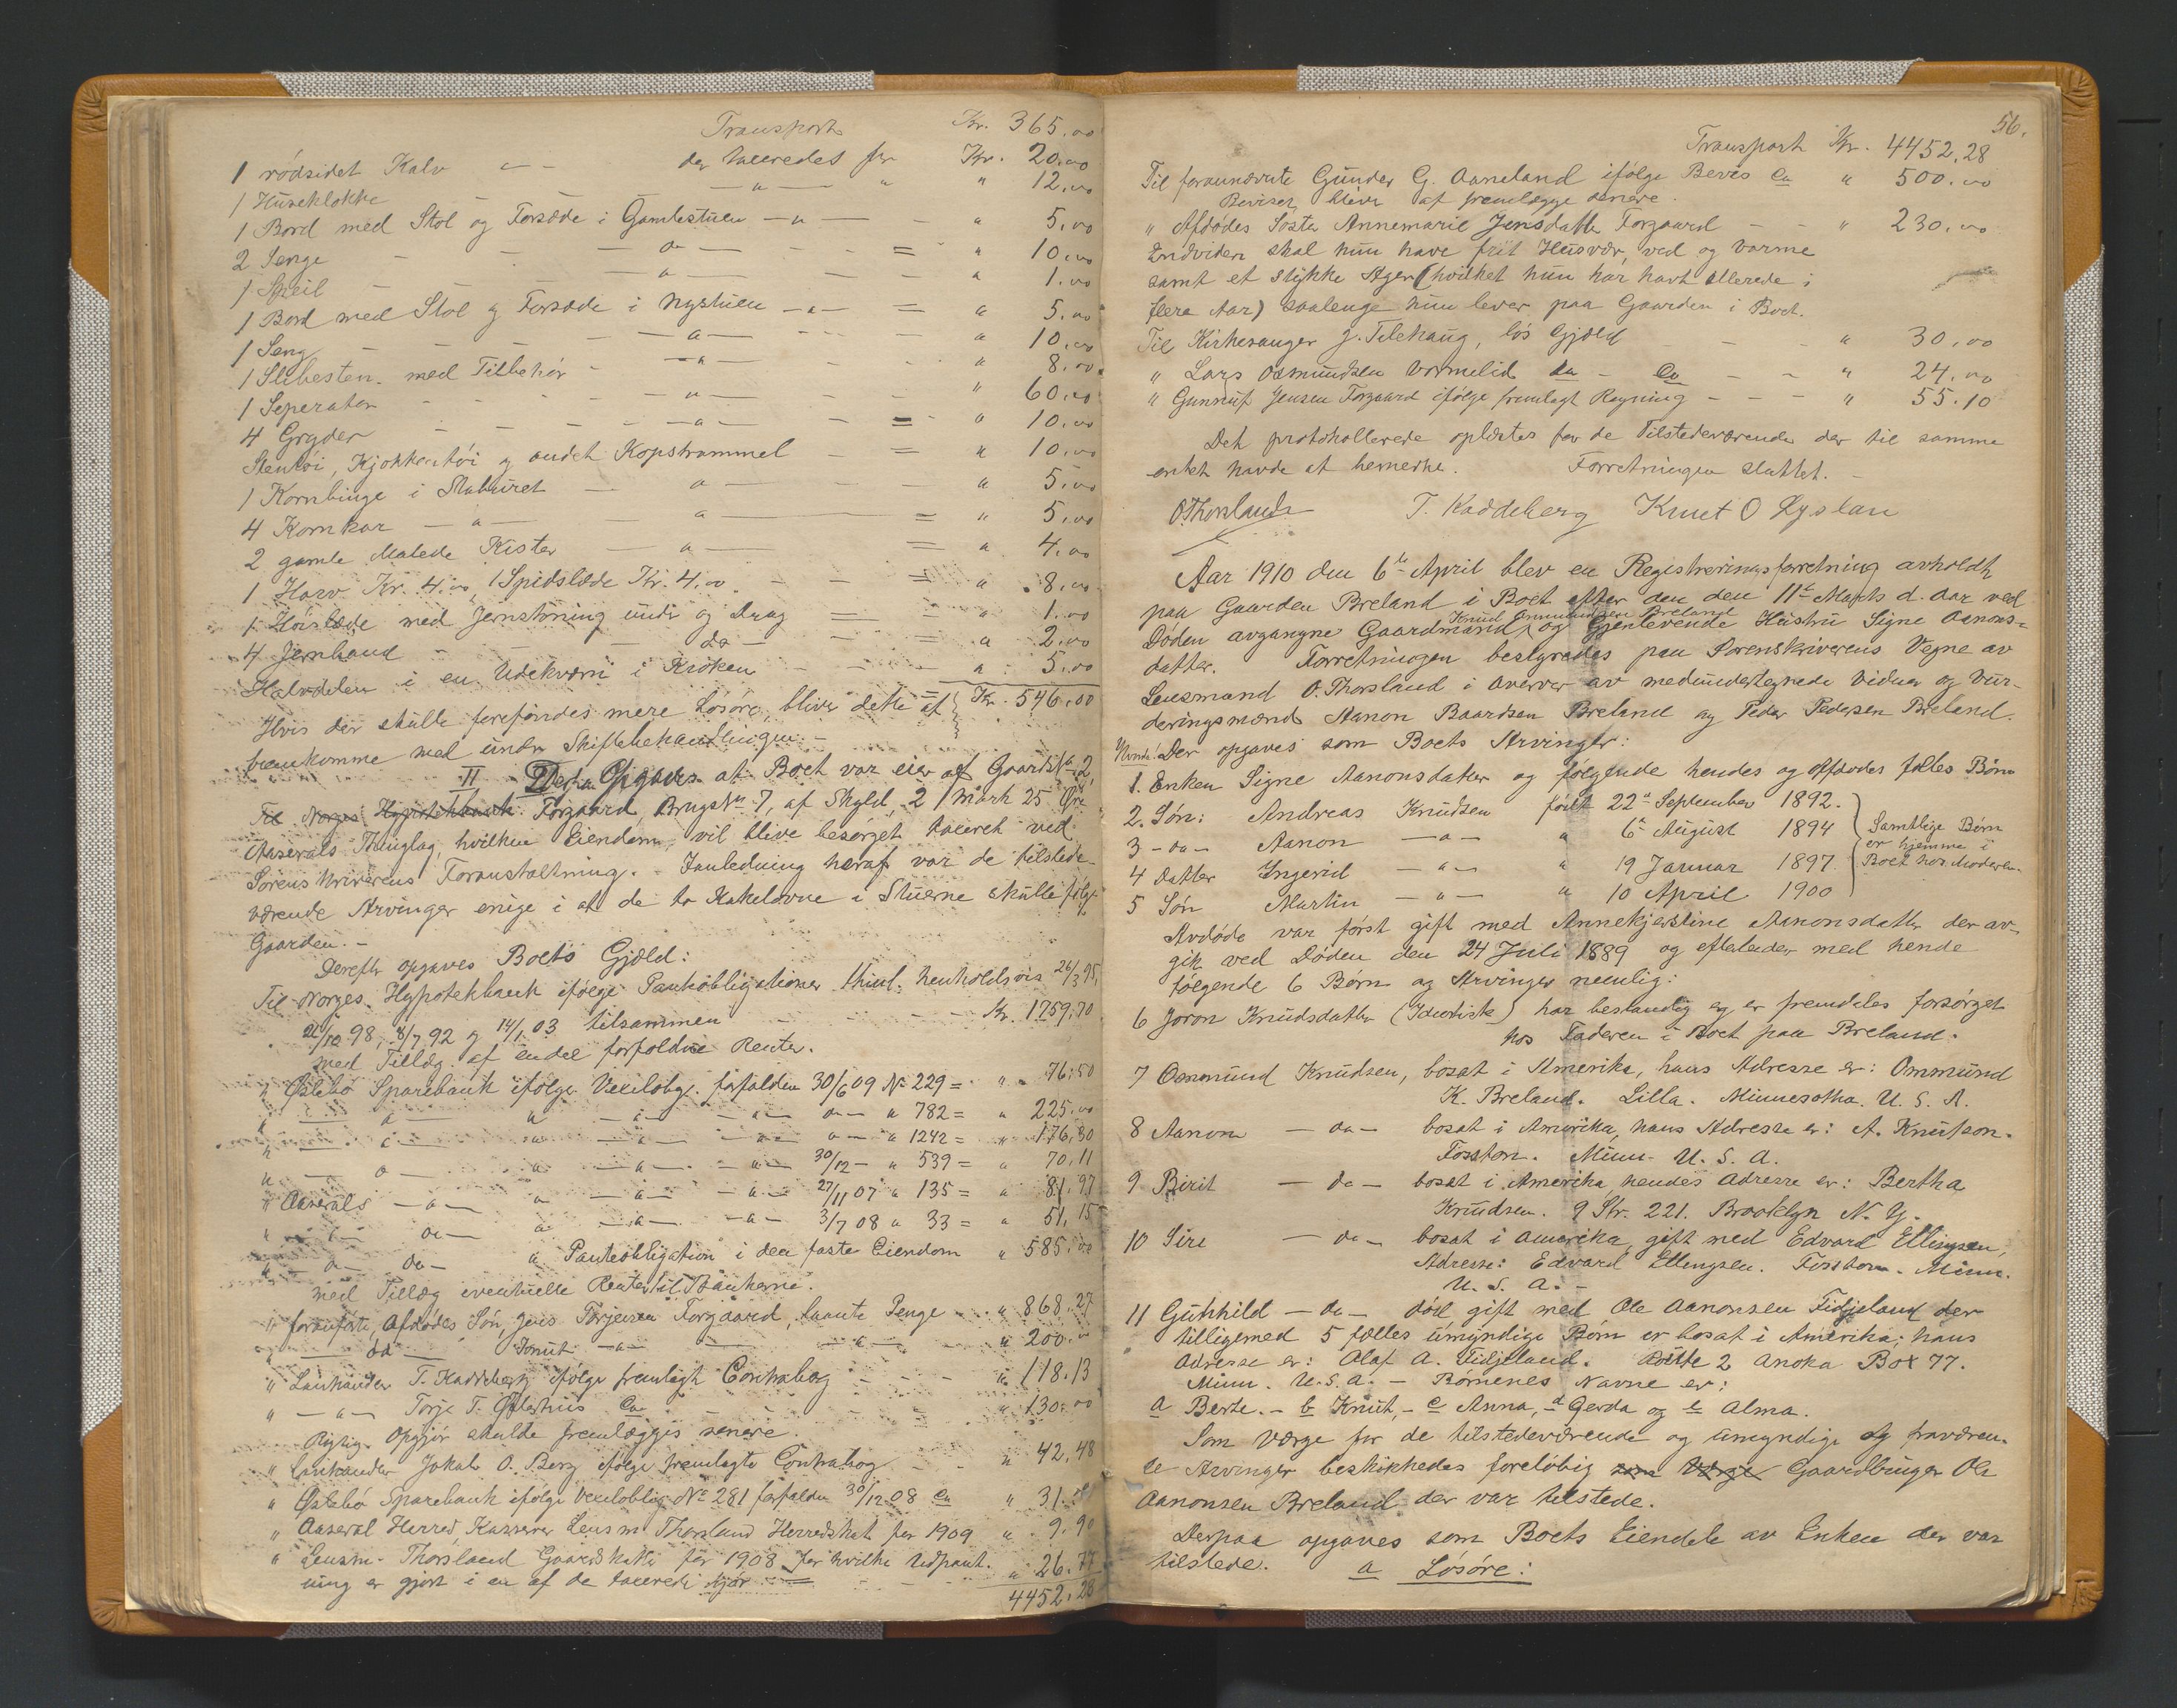 Transport Kr. 365.00
1 rödsidet Kalv — — der taxeredes for Kr. 20.00
1 Huseklokke — " — " " 12.00
1 Bord med Stol og Forsæde i Gamlestuen — " — " 5.00
2 Senge — " — = " 10.00
1 Speil — " — " 1.00
1 Bord med Stol og Forsæde i Nystuen — " — = " 5.00
1 Seng — " — " 10.00
1 Slibesten med Tilbehör — " — " 8.00
1 Seperator — " — " 60.00
4 Gryder — " — = " 10.00
Stentöi, Kjökkentöi og andet Kopskrammel — = " 10.00
1 Kornbinge i Stabüret — " — " 5.00
4 Kornkar — " — " — = " 5.00
2 gamle Malede Kister — " — = " 4.00
1 Harv Kr. 4.00, 1 Spidslæde Kr. 4.00 — = " 8.00
1 Höislæde med Jernskoning under og Drag = " 1.00
4 Jernbaand — do — = " 2.00
Halvdelen i en Udekværn i Kröken — " 5.00
Kr. 546.00
Hvis der skulle forefindes mere Lösöre, bliver dette at
fremkomme med under Skiftebehandlingen. —
II Der Opgaves at Boet var eier af Gaards No 2,
Til Norges Hypotekbank Forgaard, Brugs No 7, af Skyld 2 Mark 25 Øre
Aaserals Thinglag, hvilken Eiendom vil blive besörget taxeret ved
Sorenskriverens Foranstaltning. - I anledning heraf var de tilstede-
værende Arvinger enige i at de to Kakelovne i Stuerne skulle følge
Gaarden. —
Derefter opgaves Boets Gjæld:
Til Norges Hypotekbank ifölge Panteobligationer thinl. henholdsvis 26/3 95,
26/10 98, 8/7 92 og 14/1 03 tilsammen — Kr. 1759.70
med Tillæg af endel forfaldne Renter.
" Øslebö Sparebank ifölge Vexelobg. forfalden 30/6 09 No 229 = " 76.50
" — " — " — " — " — " 782 = " 225.00
" — " — " — " — " — " 1242 = " 176.80
" — " — " — " — 30/12 — " 539 = " 70.11
" Aaserals — " — " — " — 27/11 07 " 135 = " 81.97
" — " — " — " — " — 3/7 08 " 33 = " 51.15
" — " — do — " Panteobligation i den faste Eiendom " 585.00
med Tillæg eventuelle Renter til Bankerne.
" foranförte, Afdödes Sön, Jens Torjersen Forgaard, laante Penge — " 868.27
" — do — Knut — " — " — " 200.00
" Lanhandler T. Kaddeberg ifölge fremlagt Contrabog — " 118.13
" — " — Torje T. Øslashus — " 130.00
Rigtig Opgjör skulde fremlægges senere.
" Lanhandler Jakob O. Berg ifölge fremlagte Contrabog — " 42.48
" Øslebö Sparebank ifölge Vexeloblig. No 281 forfalden 30/12 08 " 31.
" Aaseral Herred Kasserer Lensm Thorsland Herredskat for 1909 " 9.90
" Lensm. Thorsland Gaardskatte for 1908 for hvilke Udpant-
ning er gjort i en af de taxerede Kjör — " 26.77
4452.28
56.
Transport Kr. 4452.28
Til forannævnte Gunder G. Aaneland ifölge Bevis " 500.00
Beviset bliver at fremlægge senere.
" Afdödes Söster Annemarie Jensdatter Forgaard — " 230.00
Endvidere skal hun have frit Husvær, ved og varme
samt et stykke Ager (hvilket hun har havt allerede i
flere Aar) saalenge hun lever paa Gaarden i Boet.
Til Kirkesanger J. Tilehaug, lös Gjæld — " 30.00
" Lars Osmundsen Vormelid do — do — " 24.00
" Gunnuf Jensen Forgaard ifölge fremlagt Regning — " 55.10
Det protokollerede oplæstes for de Tilstedeværende der til samme
intet havde at bemerke. Forretningen sluttet. —
O. Thorsland T. Kaddeberg Knut O Lystau
Aar 1910 den 6te April blev en Registreringsforretning avholdt
paa Gaarden Breland i Boet efter den den 11te Marts d. Aar ved
Döden avgangne Gaardmand Knud Aanmundsen Breland og Gjenlevende Hustru Signe Aanons-
datter. Forretningen bestyredes paa Sorenskriverens Vegne av
Lensmand O. Thorsland i Overver av medundertegnede Vidner og Vur-
deringsmænd Aanon Baardsen Breland og Peder Pedersen Breland.
Der opgaves som Boets Arvinger:
1. Enken Signe Aanonsdatter og følgende hendes og Afdödes fælles Börn
2. Sön: Andreas Knudsen född 22de September 1892.
3 — do — Aanon — " — " 6te August 1894
4 Datter Ingerid — " — " 19 Januar 1897
5 Sön Martin — " — " 10 April 1900
Samtlige Börn
er hjemme i
Boet hos Moderen.
Avdöde var först gift med Annekjerstine Aanonsdatter der av-
gik ved Döden den 24 Juli 1889 og efterlader med hende
fölgende 6 Börn og Arvinger nemlig:
6 Joron Knudsdatter (Idiotisk) har bestandig og er fremdeles forsörget
hos Faderen i Boet paa Breland.
7 Osmund Knudsen, bosat i Amerika, hans Adresse er: Ommund
K. Breland. Lilla. Minnesotha. U. S. A.
8 Aanon — do — bosat i Amerika, hans Adresse er: A. Knutson.
Fosston. Minn. U. S. A.
9 Birit — do — bosat i Amerika, hendes Adresse er: Bertha
Knudsen. 9 Str. 221. Brooklyn N. Y.
10 Sire — do — bosat i Amerika, gift med Edvard Ellingsen,
Adresse: Edvard Ellengsen. Fosston. Minn.
U. S. A. —
11 Gunhild — do — död, gift med Ole Aanonsen Fidjeland der
tilligemed 5 fælles umyndige Börn er bosat i Amerika; hans
Adresse er: Olaf A. Fidjeland. Route 2 Anoka Box 77.
Minn. U. S. A. — Børnenes Navne er:
a Berte. — b Knut, — c Anna, — d Gerda og e Alma.
Som Værge for de tilstedeværende og umyndige og fraværen-
de Arvinger beskikkedes foreløbig som Værge Gaardbruger Ole
Aanonsen Breland der var tilstede.
Derpaa opgaves som Boets Eiendele av Enken der var
tilstede. a Lösöre: